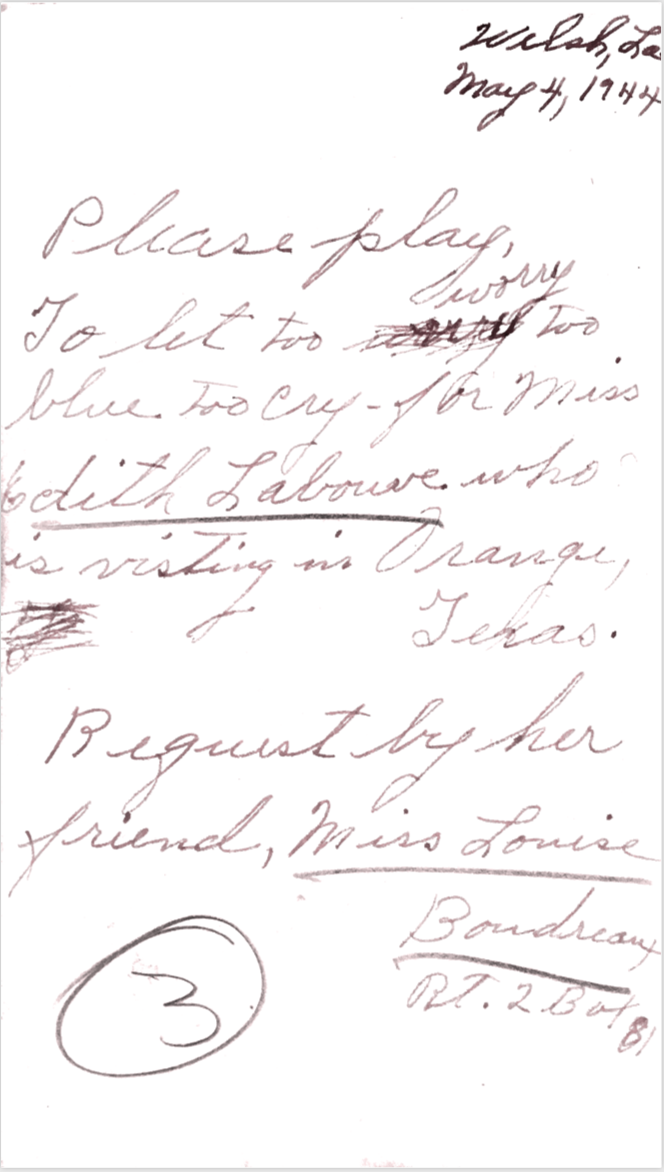 Welsh, La
May 4, 1944
Please play,
worry
To let too too
blue too cry - for Miss
Edith Labouve. who
is visting in Orange,
Texas.
Request by her
friend, Miss Louise
Boudreaux
Rt. 2 Box
81
3